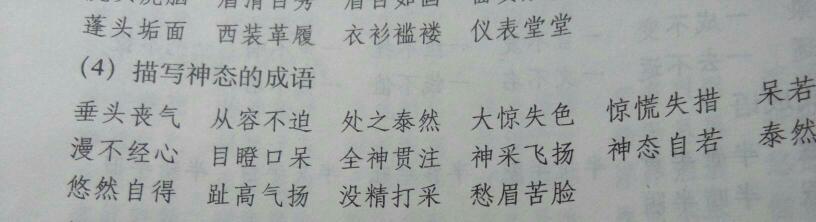 眉清目秀 眉目如画
蓬头垢面 西装革履 衣衫褴褛 仪表堂堂
(4) 描写神态的成语
垂头丧气 从容不迫 处之泰然 大惊失色 惊慌失措 呆若
漫不经心 目瞪口呆 全神贯注 神采飞扬 神态自若 泰然
悠然自得 趾高气扬 没精打采 愁眉苦脸